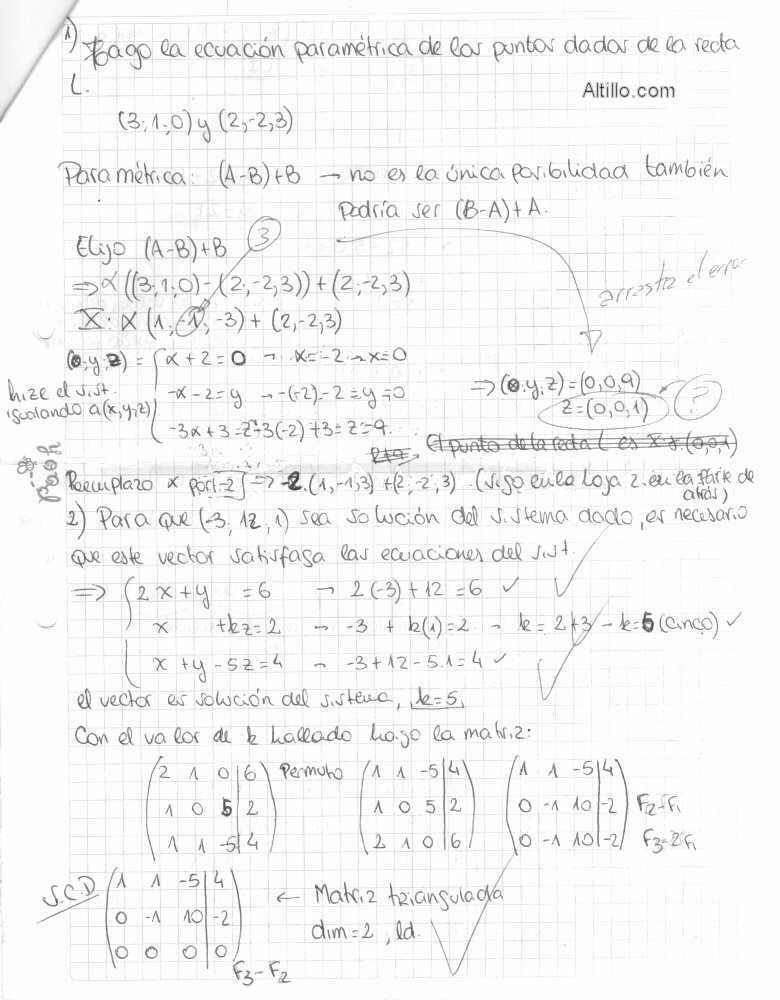 1) Hago la ecuación paramétrica de los puntos dados de la recta
L.
Altillo.com
(3;1;0) y (2,-2,3)
Paramétrica: (A-B)+B → no es la única posibilidad también
Podría ser (B-A)+A.
Elijo (A-B)+B
3
⇒ α((3;1;0)-(2;-2,3))+(2;-2,3)
arrastra el error
X: α(1,-1,-3)+(2,-2,3)
(0;y;z) = { α+2=0 → α=-2 → x=0
hize el sist.
igualando a (x,y,z)
-α-2=y → -(-2)-2=y=0
-3α+3=z → -3(-2)+3=z=9.
⇒ (0;y;z)=(0,0,9)
z=(0,0,1)
?
El punto de la recta L es X=(0;0;1)
Reemplazo α por -2 ⇒ -2.(1,-1,3)+(2,-2,3). (sigo en la hoja 2. en la parte de
atrás)
2) Para que (-3; 12, 1) sea solución del sistema dado, es necesario
que este vector satisfaga las ecuaciones del sist.
⇒ { 2x+y =6 → 2(-3)+12=6 ✓
x +kz=2 → -3 + k(1)=2 → k=2+3 → k=5 (cinco) ✓
x+y-5z=4 → -3+12-5.1=4 ✓
el vector es solución del sistema, k=5.
Con el valor de k hallado hago la matriz:
(2 1 0 | 6) Permuto (1 1 -5 | 4) (1 1 -5 | 4)
(1 0 5 | 2) (1 0 5 | 2) (0 -1 10 | -2) F2-F1
(1 1 -5 | 4) (2 1 0 | 6) (0 -1 10 | -2) F3-2F1
S.C.D (1 1 -5 | 4) ← Matriz triangulada
(0 -1 10 | -2) dim=2, ld.
(0 0 0 | 0)
F3-F2